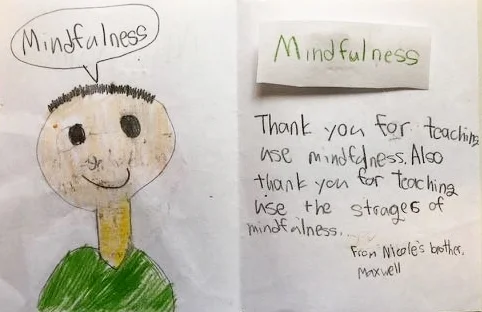 Mindfulness
Mindfulness
Thank you for teaching
use mindfdness. Also
thank you for teaching
use the strages of
mindfulness.
From Nicole's brother,
Maxwell